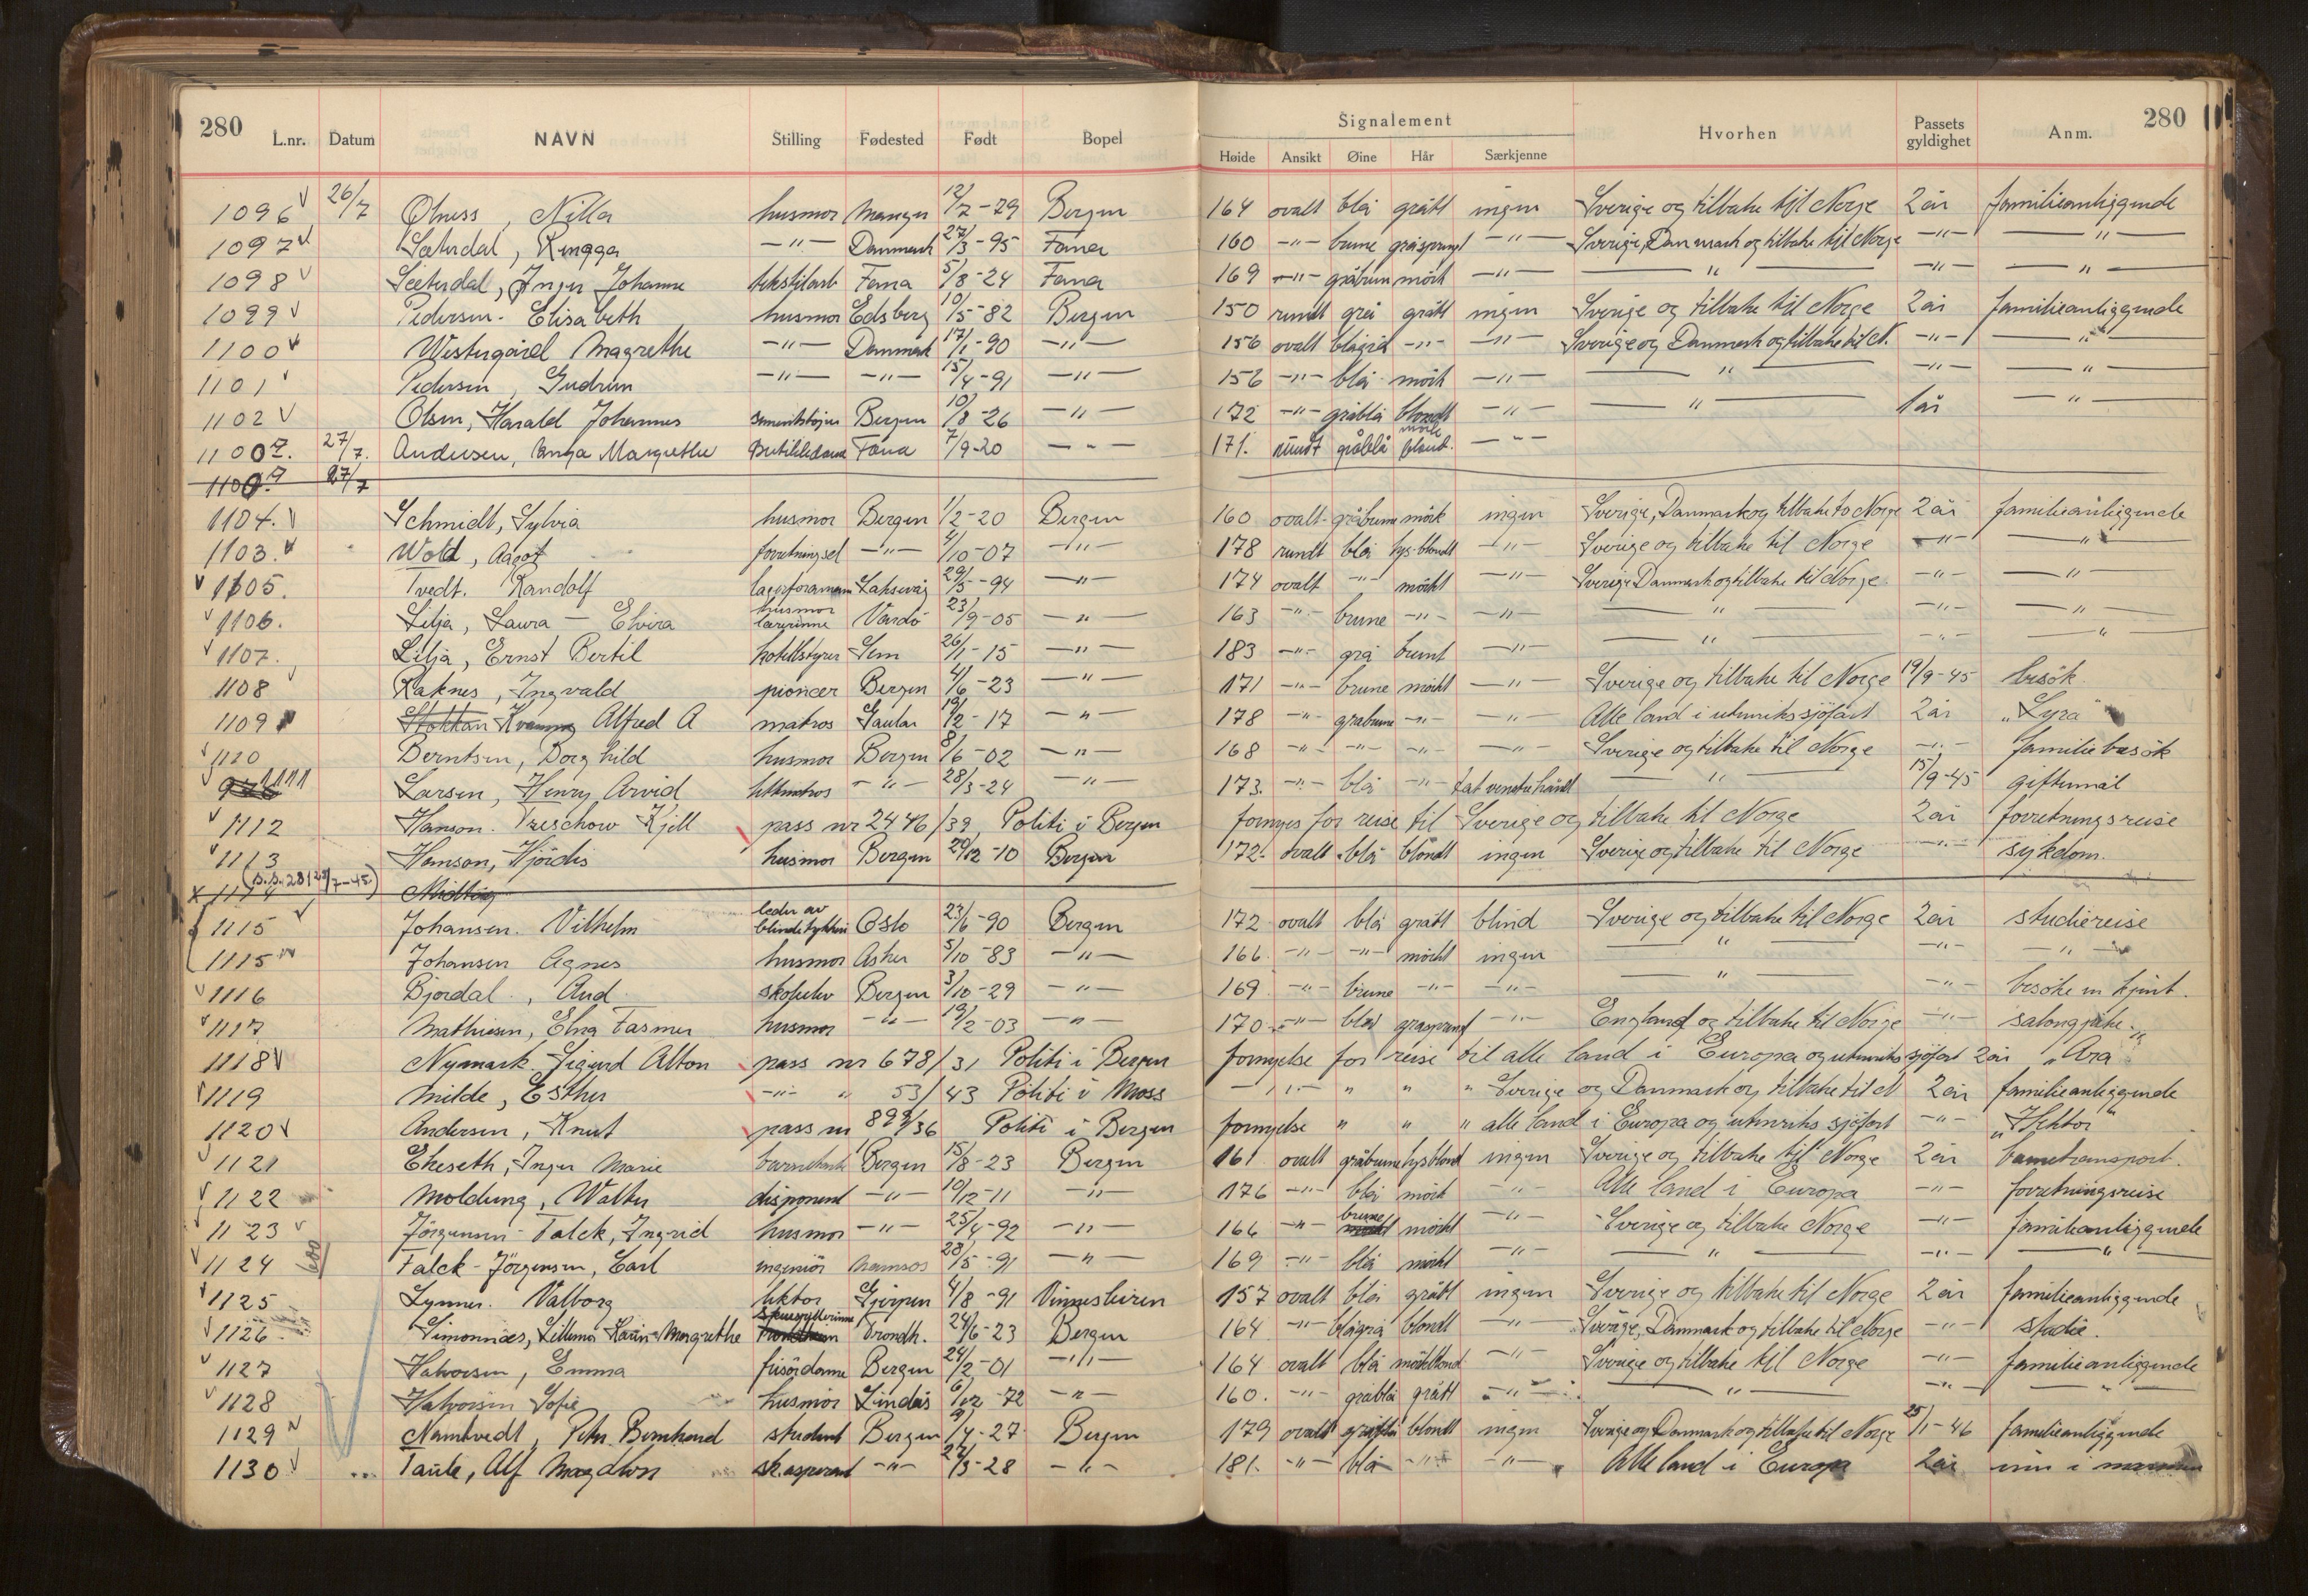 280 280
Signalement
L.nr. Datum NAVN Stilling Fødested Født Bopel Høide Ansikt Øine Hår Særkjenne Hvorhen Passets gyldighet Anm.
1096 26/7 Olness, Nilla husmor Manger 12/7-79 Bergen 164 ovalt blå grått ingen Sverige og tilbake til Norge 2 år familieanliggende
1097 Sæterdal, husmor -"- Danmark 27/3-95 Fana 160 -"- brune gråsprengt -"- Sverige, Danmark og tilbake til Norge -"- -"-
1098 Sæterdal, Inger Johanne tekstilarb Fana 5/8-24 Fana 169 -"- gråbrun mørk -"- -"- -"- -"-
1099 Pedersen. Elisabeth husmor Edsberg 10/5-82 Bergen 150 rundt grå grått ingen Sverige og tilbake til Norge 2 år familieanliggende
1100 Westergård Magrethe -"- Danmark 17/1-90 -"- 156 ovalt blågrå -"- -"- Sverige og Danmark og tilbake til N. -"- -"-
1101 Pedersen, Gudrun -"- -"- 15/4-91 -"- 156 -"- blå mörk -"- -"- -"- -"-
1102 Olsen, Harald Johannes Bergen 10/8-26 -"- 172 -"- gråblå blondt -"- -"- 1 år -"-
27/7. Andersen, Margrethe Fana 7/9-20 -"- 171. rundt gråblå mörk blond. -"-
27/7
1104. Schmidt, Sylvia husmor Bergen 1/2-20 Bergen 160 ovalt gråbrune mörk ingen Sverige, Danmark og tilbake to Norge 2 år familieanliggende
1103. Wold, Aagot forretningsel -"- 4/10-07 -"- 178 rundt blå lys-blondt -"- Sverige og tilbake til Norge -"- -"-
1105. Tvedt. Randolf lagerformann Laksevåg 29/5-94 -"- 174 ovalt -"- mörkt -"- Sverige Danmark og tilbake til Norge -"- -"-
1106. Lilja, Laura - Elvira husmor lærerinne Vardö 23/9-05 -"- 163 -"- brune -"- -"- -"- -"- -"-
1107. Lilja, Ernst Bertil hotellstyrer Sem 26/1-15 -"- 183 -"- grå brunt -"- -"- -"- -"-
1108 Raknes, Ingvald pioneer Bergen 4/6-23 -"- 171 -"- brune mörkt -"- Sverige og tilbake til Norge 19/9-45 besök
1109 Kvamme Alfred A matros Gaular 19/2-17 -"- 178 -"- gråbrune -"- -"- Alle land i utenrikssjöfart 2 år "Lyra"
1110 Berntsen, Borghild husmor Bergen 8/6-02 -"- 168 -"- -"- -"- -"- Sverige og tilbake til Norge -"- familiebesök
1111 Larsen, Henry Arvid lettmatros -"- 28/3-24 -"- 173. -"- blå -"- tat venstre hånd -"- 15/9-45 giftemål
1112 Hanson. Treschow Kjell pass nr 2446/39, Politi i Bergen fornyes for reise til Sverige og tilbake til Norge 2 år forretningsreise
1113 Hanson, Hjördis husmor Bergen 29/12-10 Bergen 172. ovalt blå blöndt ingen Sverige og tilbake til Norge -"- sykdom.
1114
1115 Johansen. Vilhelm leder av Oslo 23/6-90 Bergen 172 ovalt blå grått blind Sverige og tilbake til Norge 2 år studiereise
1115 Johansen Agnes husmor Asker 5/10-83 -"- 166. -"- -"- mörkt ingen -"- -"- -"-
1116 Bjordal., Aud skoleelev Bergen 3/10-29 -"- 169 -"- brune -"- -"- -"- -"- besöke m kjent.
1117 Mathiesen, Elna Fasmer husmor -"- 19/2-03 -"- 170 -"- blå gråsprengt -"- England og tilbake til Norge -"-
1118 Nymark Sigurd Alton pass nr 678/31 Politi i Bergen fornyelse for reise til alle land i Europa og utenriks sjöfart 2 år "Ara"
1119 Milde, Esther -"- " 53/43 Politi i Moss -"- " " " Sverige og Danmark og tilbake til N 2 år familieanliggende
1120 Andersen, Knut pass nr 899/36 Politi i Bergen fornyelse " " " alle land i Europa og utenriks sjöfart -"- "Hektor"
1121 Ekeseth, Inger Marie Bergen 15/8-23 Bergen 161 ovalt gråbrune lysblond ingen Sverige og tilbake til Norge 2 år barnetransport.
1122 Moldung, Walter disponent -"- 10/12-11 -"- 176 -"- blå mörk -"- Alle land i Europa -"- forretningsreise
1123 Jörgensen-Falck, Ingrid husmor -"- 25/4-92 -"- 166 -"- brune mörkt -"- Sverige og tilbake Norge -"- familieanliggende
1124 Falck-Jörgensen, Carl ingeniör Namsos 28/5-91 -"- 169 -"- blå mörkt -"- -"- -"- -"-
1125 Lynner. Valborg lektor Gjerpen 4/8-91 Vinnesleiren 157 ovalt blå grått ingen Sverige og tilbake til Norge 2 år familieanliggende
1126 Simonnæs, Lillemor Karin Margrethe skuespillerinne Trondh. 24/6-23 Bergen 164 -"- blågrå blondt -"- Sverige, Danmark og tilbake til Norge -"- studie.
1127 Halvorsen, Emma frisördame Bergen 24/2-01 -"- 164 ovalt blå mörkblond -"- Sverige og tilbake til Norge -"- familieanliggende
1128 Halvorsen Sofie husmor Lindås 6/12-72 -"- 160. -"- gråblå grått -"- -"- -"- -"-
1129 Namtvedt, Peter Bernhard student Bergen 9/4-27 Bergen 179 ovalt gråblå blondt ingen Sverige og Danmark og tilbake til Norge 25/1-46 familieanliggende
1130 Taule, Alf Magdton sk.aspirant -"- 27/3-28 -"- 181. -"- blå -"- -"- Alle land i Europa 2 år inn i marinen